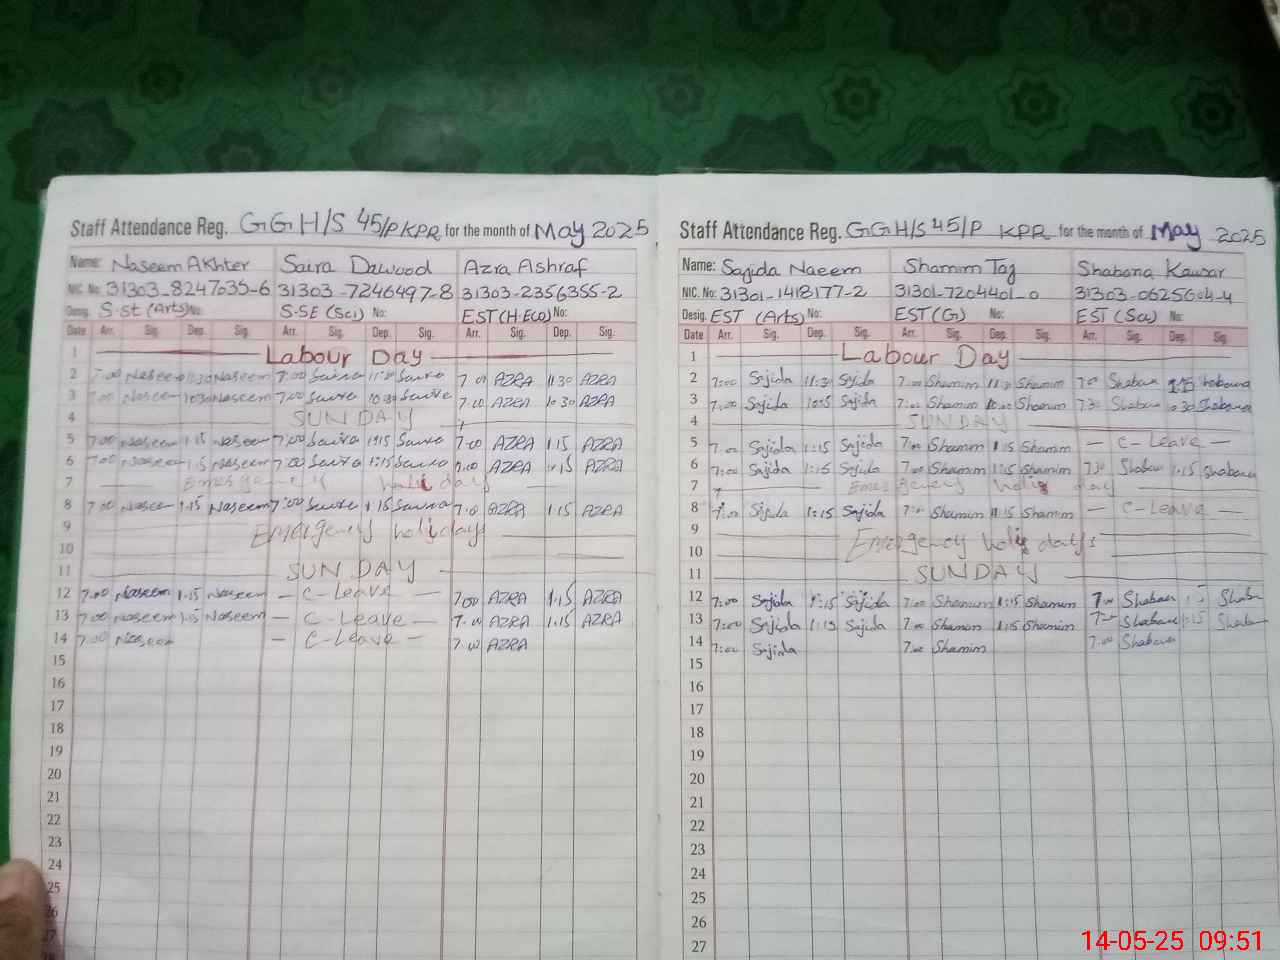 Staff Attendance Reg. GGH/S 45/P KPR for the month of May 2025
Name: Naseem Akhter Saira Dawood Azra Ashraf
NIC. No. 31303-8247035-6 31303-7246497-8 31303-2356355-2
Desig. S.St (Arts) No: S.SE (Sci) No: EST (H.Eco) No:
Date Arr. Sig. Dep. Sig. Arr. Sig. Dep. Sig. Arr. Sig. Dep. Sig.
1 Labour Day
2 7.00 Naseem 11:30 Naseem 7:00 Saira 11:30 Saira 7.00 AZRA 11.30 AZRA
3 7.00 Naseem 10:30 Naseem 7:00 Saira 10:30 Saira 7.00 AZRA 10 30 AZRA
4 SUNDAY
5 7:00 Naseem 1.15 Naseem 7:00 Saira 1:15 Saira 7.00 AZRA 1.15 AZRA
6 7:00 Naseem 1.15 Naseem 7:00 Saira 1:15 Saira 7.00 AZRA 1.15 AZRA
7 Emergency holiday
8 7.00 Naseem 1.15 Naseem 7:00 Saira 1.15 Saira 7.0 AZRA 1.15 AZRA
9 Emergency holidays
10
11 SUNDAY
12 7.00 Naseem 1.15 Naseem - C-Leave - 7.00 AZRA 1.15 AZRA
13 7.00 Naseem 1.15 Naseem - C-Leave - 7.00 AZRA 1.15 AZRA
14 7.00 Naseem - C-Leave - 7.00 AZRA
15
16
17
18
19
20
21
22
23
24
25
26
27
Staff Attendance Reg. GGH/S 45/P KPR for the month of May 2025
Name: Sajida Naeem Shamim Taj Shabana Kausar
NIC. No: 31301-1418177-2 31301-7204401-0 31303-0625604-4
Desig. EST (Arts) No: EST (G) No: EST (Sci) No:
Date Arr. Sig. Dep. Sig. Arr. Sig. Dep. Sig. Arr. Sig. Dep. Sig.
1 Labour Day
2 7:00 Sajida 11:30 Sajida 7:00 Shamim 11:30 Shamim 7.00 Shabana Shabana
3 7:00 Sajida Sajida 7:00 Shamim Shamim 7.30 Shabana 10 30 Shabana
4 SUNDAY
5 7:00 Sajida 1:15 Sajida 7:00 Shamim 1:15 Shamim - C-Leave -
6 7:00 Sajida 1:15 Sajida 7:00 Shamim 1:15 Shamim 7.30 Shabana 1.15 Shabana
7 Emergency holiday
8 7:00 Sajida 1:15 Sajida 7:00 Shamim 1:15 Shamim - C-Leave -
9 Emergency holidays
10
11 SUNDAY
12 7:00 Sajida 1:15 Sajida 7:00 Shamim 1:15 Shamim 7.00 Shabana Shabana
13 7:00 Sajida 1:15 Sajida 7:00 Shamim 1:15 Shamim 7.00 Shabana 1.15 Shabana
14 7:00 Sajida 7:00 Shamim 7.00 Shabana
15
16
17
18
19
20
21
22
23
24
25
26
27
14-05-25 09:51